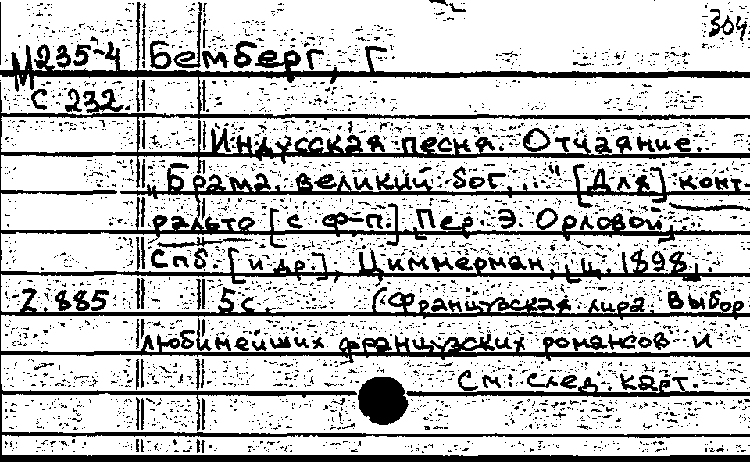 304
М 235-4 Бемберг, Г
С 232.
Индусская песня. Отчаяние.
"Брама, великий бог,..." [Для] конт
ральто [с ф-п.] Пер. Э. Орловой,
Спб. [и др.], Циммерман, [ц. 1898].
2.885 5 с. (Французская лира. Выбор
любимейших французских романсов и
См: след. карт.